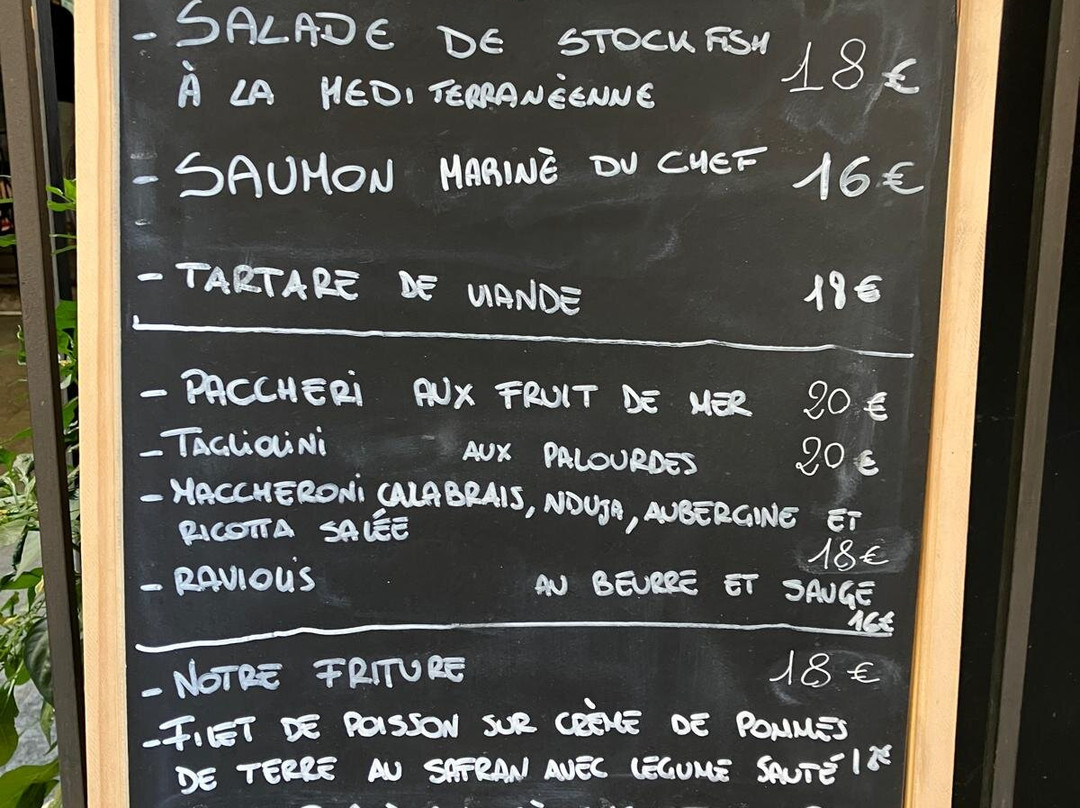 - SALADE DE STOCKFISH 18€
À LA MEDITERRANÈENNE
- SAUMON MARINÈ DU CHEF 16€
- TARTARE DE VIANDE 18€
- PACCHERI AUX FRUIT DE MER 20€
- TAGLIOLINI AUX PALOURDES 20€
- MACCHERONI CALABRAIS, NDUJA, AUBERGINE ET
RICOTTA SALÉE
18€
- RAVIOLIS AU BEURRE ET SAUGE
16€
- NOTRE FRITURE 18€
- FILET DE POISSON SUR CRÈME DE POMMES
DE TERRE AU SAFRAN AVEC LEGUME SAUTÉ